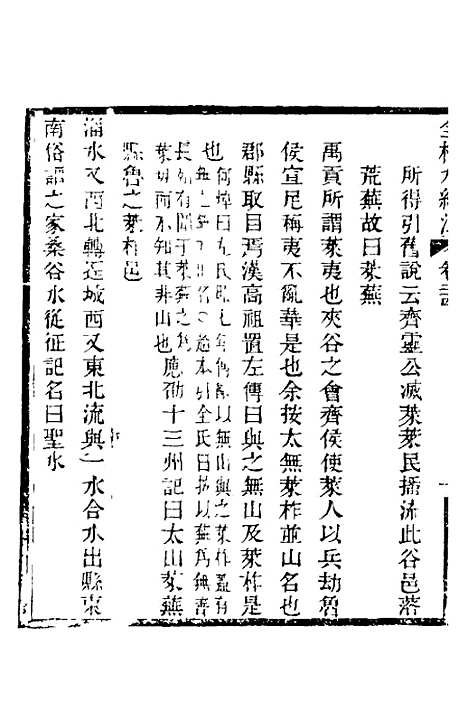 全校水經注 卷二十四
所得引舊說云齊靈公滅萊萊民播流此谷邑落
荒蕪故曰萊蕪
禹貢所謂萊夷也夾谷之會齊侯使萊人以兵劫魯
侯宣尼稱夷不亂華是也余按太無萊柞並山名也
郡縣取目焉漢高祖置左傳曰與之無山及萊柞是
也何焯曰左氏昭七年傳
以無山與之萊柞
全氏曰
以蕪爲無
長
而不知其非山也應劭十三州記曰太山萊蕪
縣魯之萊柞邑
淄水又西北轉逕城西又東北流與一水合水出縣東
南俗謂之家桑谷水從征記名曰聖水